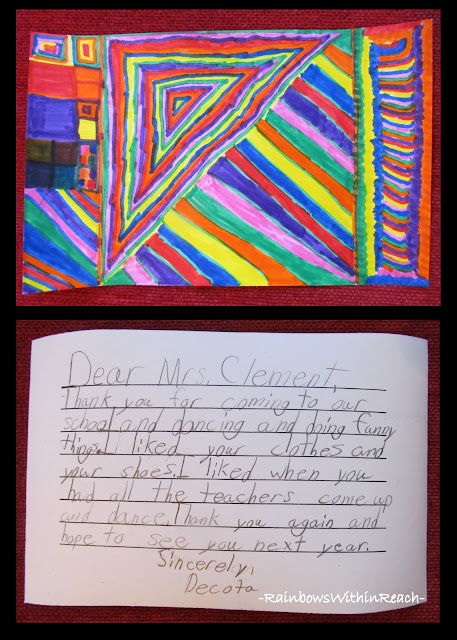 Dear Mrs. Clement,
Thank you for coming to our
school and dancing and doing funny
things. I liked your clothes and
your shoes. I liked when you
had all the teachers come up
and dance. Thank you again and
hope to see you next year.
Sincerely,
Decota
-RainbowsWithinReach-